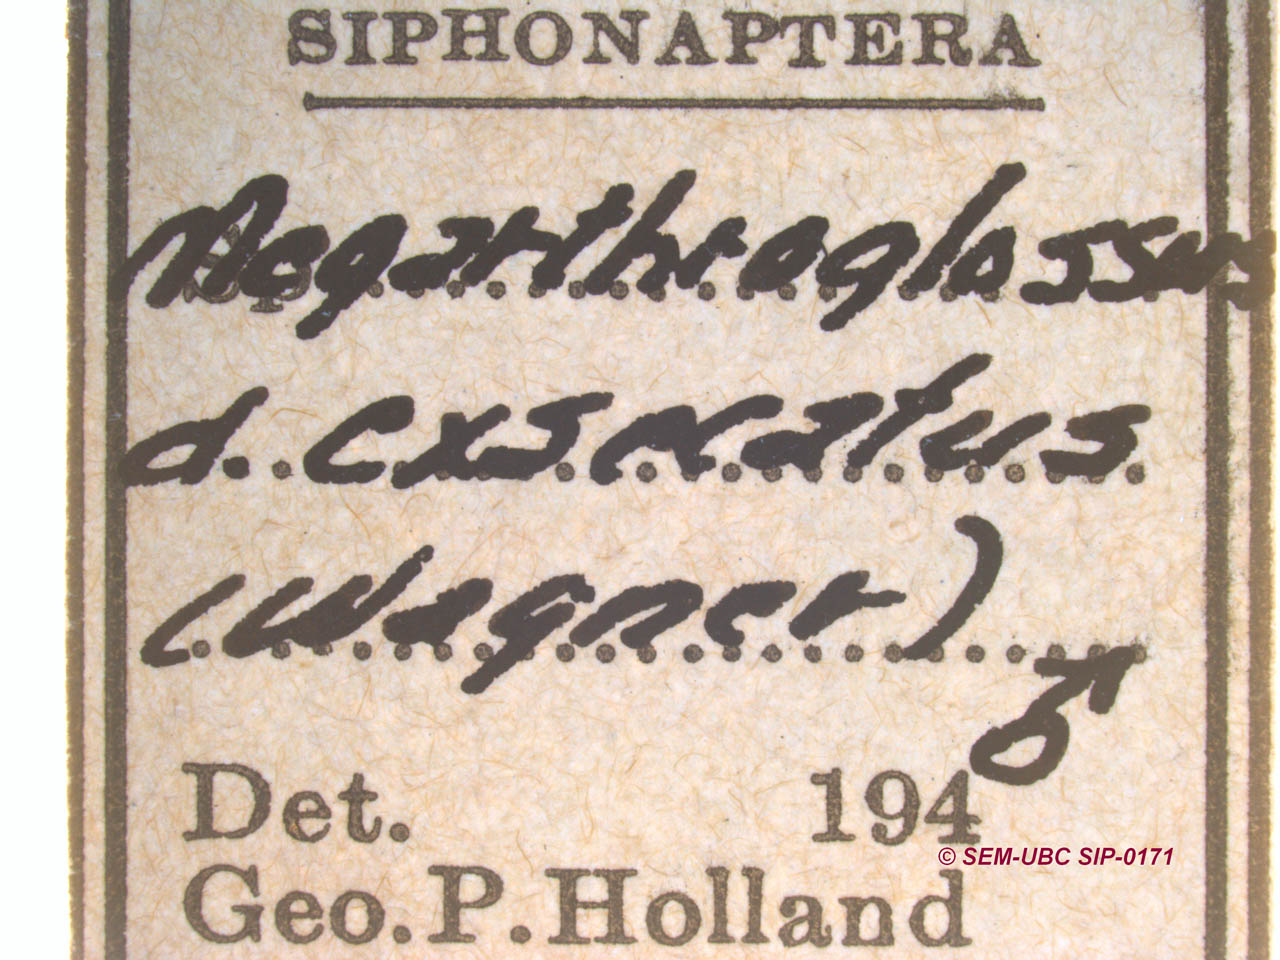 SIPHONAPTERA
Megarthroglossus
d. exsecatus
(Wagner)
♂
Det. 194
© SEM-UBC SIP-0171
Geo. P. Holland